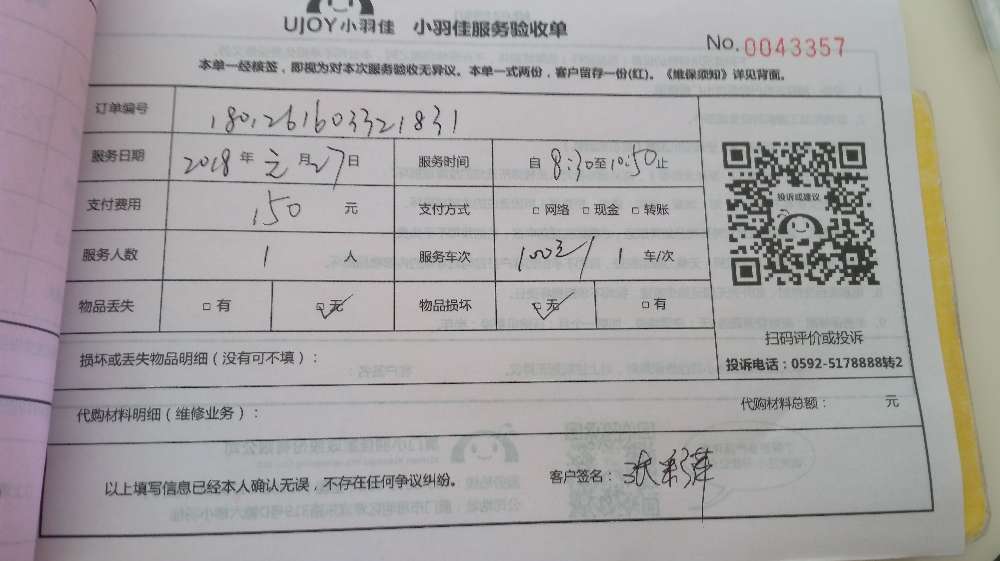 UJOY小羽佳 小羽佳服务验收单
No.0043357
本单一经核签，即视为对本次服务验收无异议。本单一式两份，客户留存一份(红)。《维保须知》详见背面。
订单编号 1801261603321831
服务日期 2018 年 元 月 27 日 服务时间 自 8:30 至 10:50 止
支付费用 150 元 支付方式 □ 网络 □ 现金 □ 转账
服务人数 1 人 服务车次 1 车/次
物品丢失 □ 有 □ 无 物品损坏 □ 无 □ 有
投诉或建议
扫码评价或投诉
投诉电话：0592-5178888转2
损坏或丢失物品明细（没有可不填）：
代购材料明细（维修业务）： 代购材料总额： 元
以上填写信息已经本人确认无误，不存在任何争议纠纷。 客户签名：